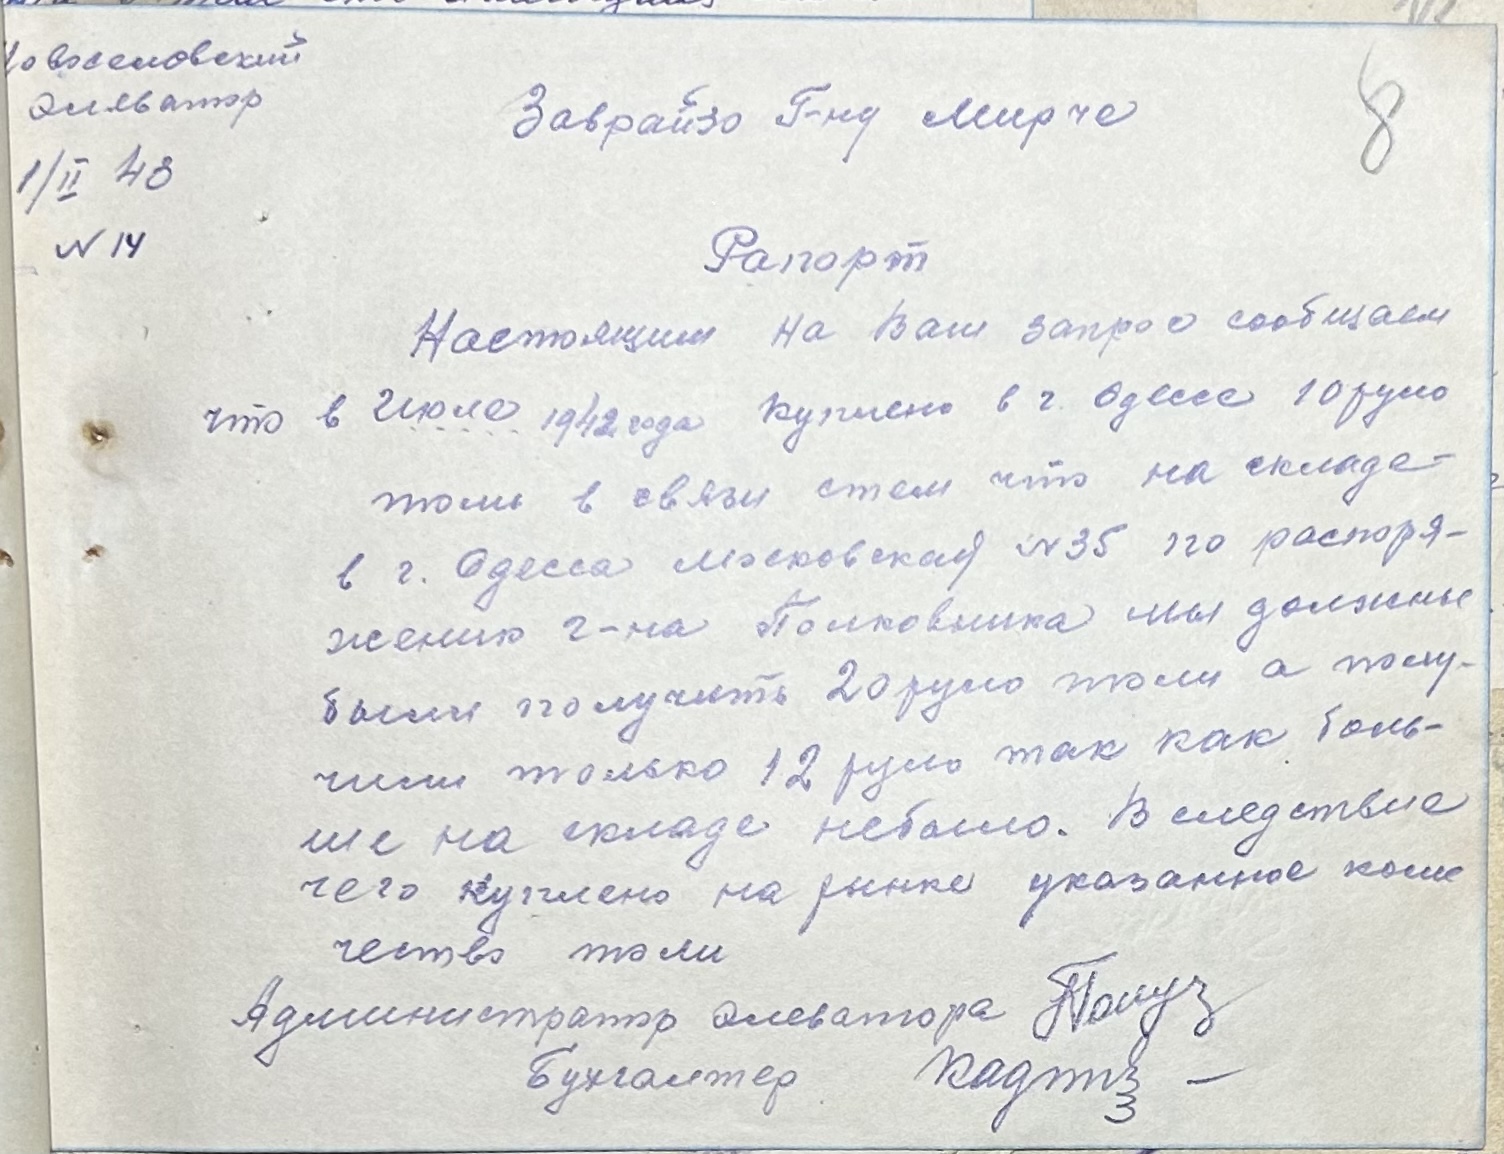 Новоселовский
Элеватор
1/II 43
N 14
8
Заврайзо Г-ну Мирче
Рапорт
Настоящим на Ваш запрос сообщаем
что в Июле 1942 года куплено в г. Одессе 10 руло
толь в связи стем что на складе-
в г. Одесса Московская N 35 по распоря-
жению г-на Полковника мы должны
были получить 20 руло толи а полу-
чили только 12 руло так как боль-
ше на складе небыло. Вследствие
чего куплено на рынке указанное коли
чество толи
Администратор элеватора
Бухгалтер